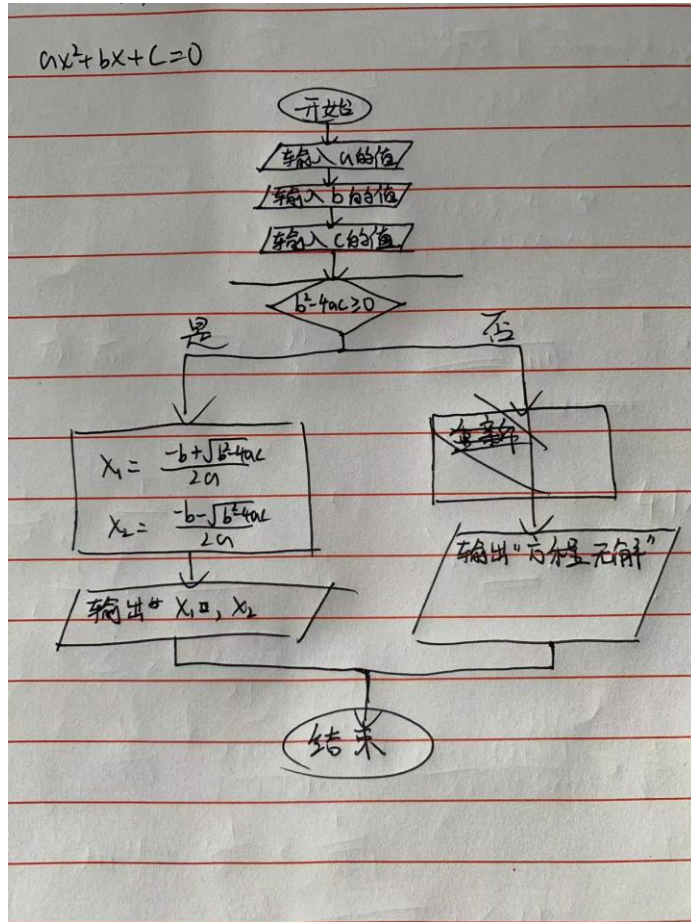 ax²+bx+c=0
开始
输入a的值
输入b的值
输入c的值
b²-4ac≥0
是
否
x₁= (-b+√(b²-4ac))/2a
x₂= (-b-√(b²-4ac))/2a
输出“方程无解”
输出" x₁, x₂
结束